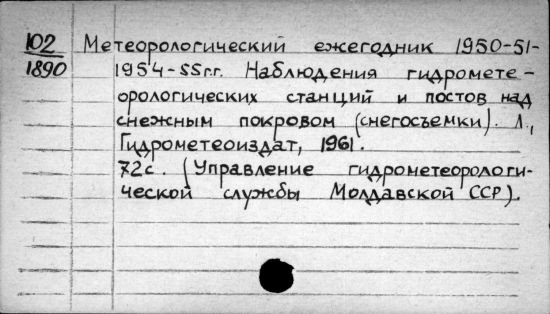 102 Метеорологический ежегодник 1950-51-
1890 1954-55гг. Наблюдения гидромете-
орологических станций и постов над
снежным покровом (снегосъемки). Л.,
Гидрометеоиздат, 1961.
72с. (Управление гидрометеорологи-
ческой службы Молдавской ССР).